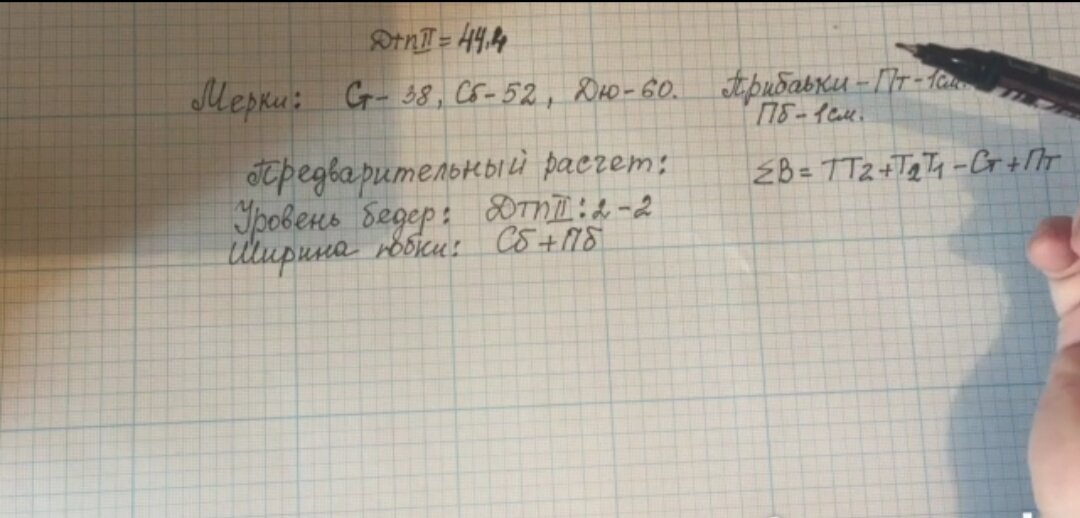 ДтпII = 44.4
Мерки: Ст - 38, Сб - 52, Дю - 60. Прибавки - Пт - 1см.
Пб - 1см.
Предварительный расчет: ΣВ = ТТ2 + Т2Т1 - Ст + Пт
Уровень бедер: ДтпII : 2 - 2
Ширина юбки: Сб + Пб